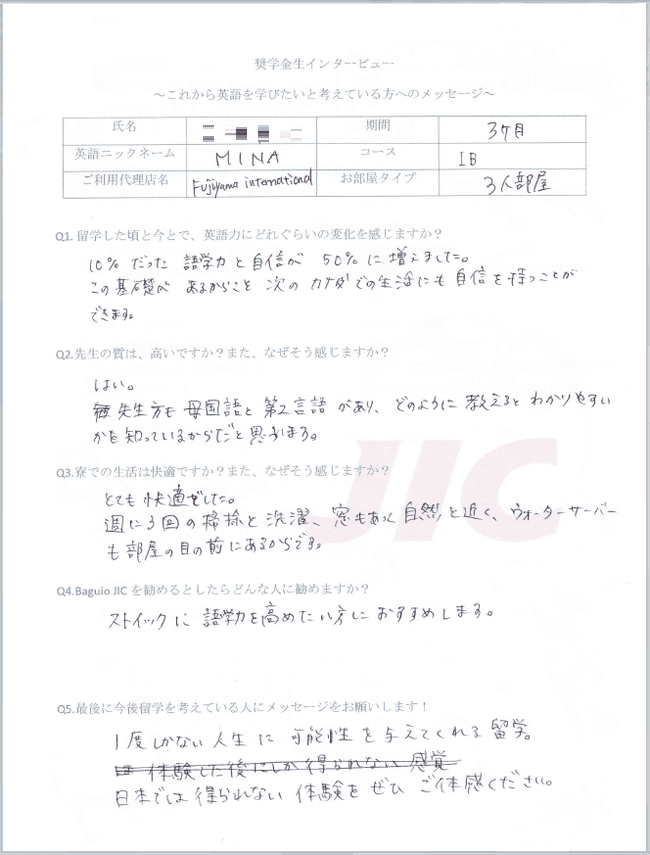 奨学金生インタービュー
～これから英語を学びたいと考えている方へのメッセージ～
氏名 期間 3ヶ月
英語ニックネーム MINA コース IB
ご利用代理店名 Fujiyama international お部屋タイプ 3人部屋
Q1. 留学した頃と今とで、英語力にどれぐらいの変化を感じますか？
10%だった 語学力と自信が 50%に増えました。
この基礎が あるからこそ 次の カナダでの生活にも 自信を持つことが
できます。
Q2.先生の質は、高いですか？また、なぜそう感じますか？
はい。
先生方も 母国語と第2言語 があり、どのように 教えると わかりやすい
かを知っているからだと思います。
Q3.寮での生活は快適ですか？また、なぜそう感じますか？
とても 快適でした。
週に3回の掃除と洗濯、窓もあって自然と近く、ウォーターサーバー
も部屋の目の前にあるからです。
JIC
Q4.Baguio JIC を勧めるとしたらどんな人に勧めますか？
ストイックに 語学力を高めたい方に おすすめします。
Q5.最後に今後留学を考えている人にメッセージをお願いします！
1度しかない人生に 可能性を与えてくれる留学。
は 体験した後にしか得られない 感覚
日本では得られない 体験を ぜひ ご体感ください。